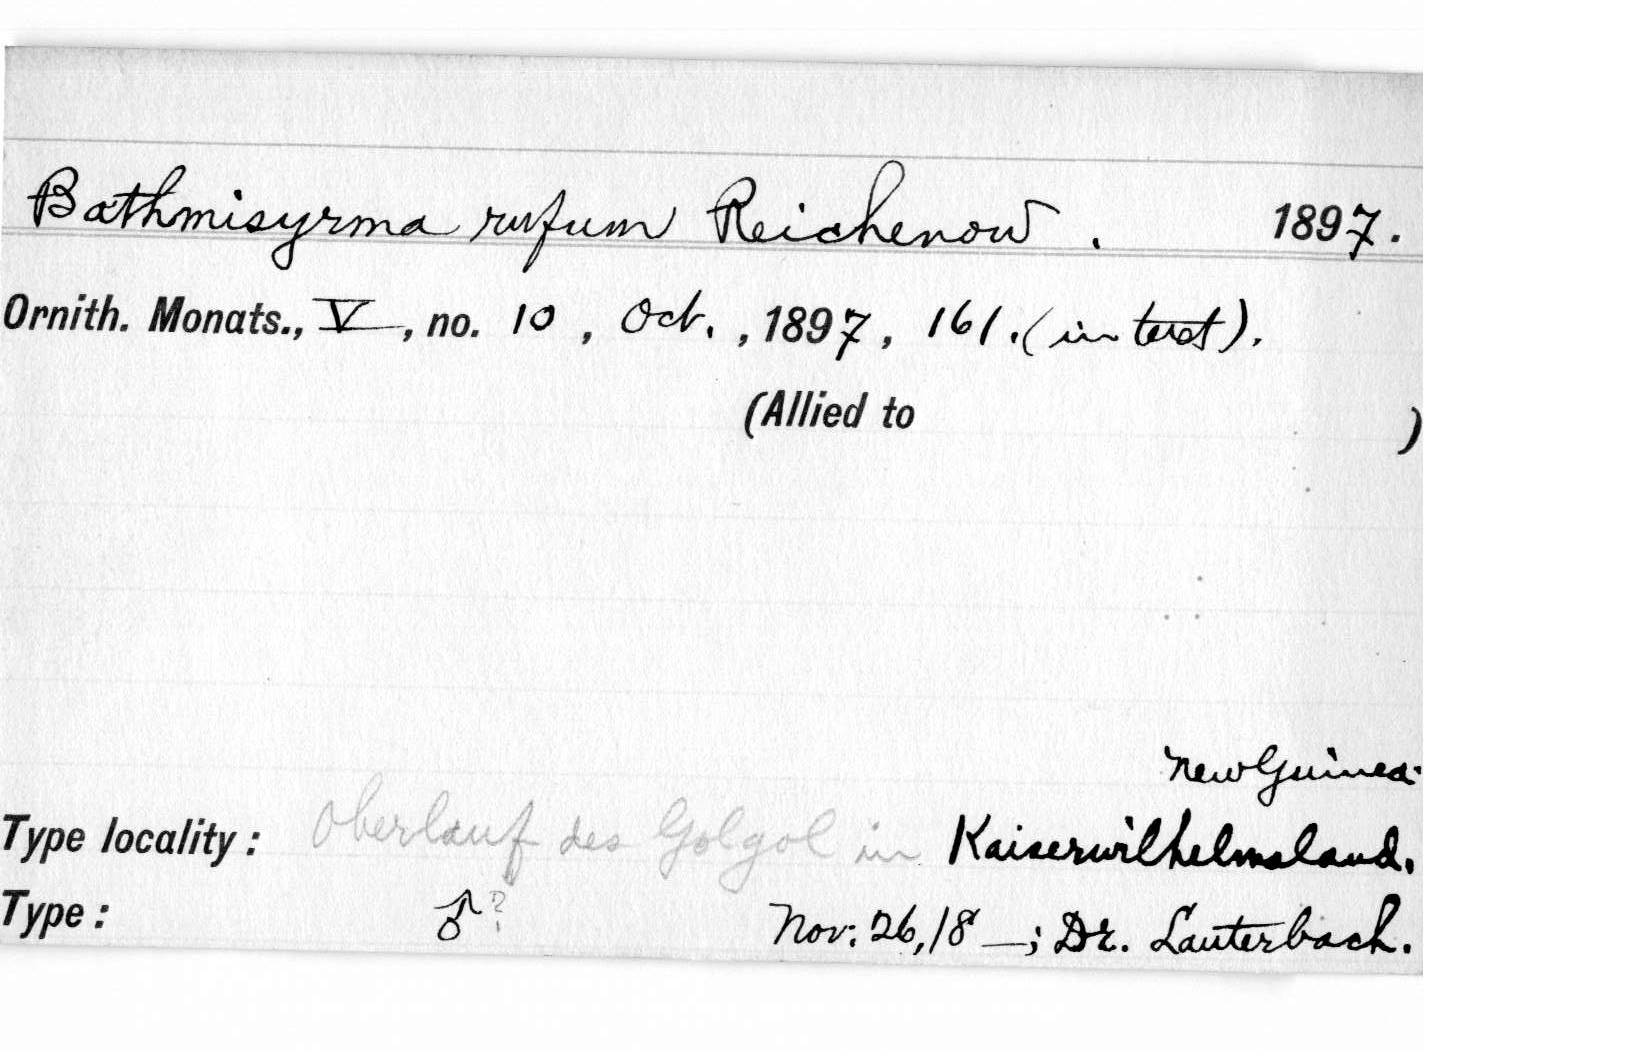 Bathmisyrma rufum Reichenow. 1897.
Ornith. Monats., V, no. 10, Oct., 1897, 161. (in text).
(Allied to )
New Guinea:
Type locality: Oberlauf des Golgol in Kaiserwilhelmsland.
Type: ♂? Nov. 26, 18—; Dr. Lauterbach.